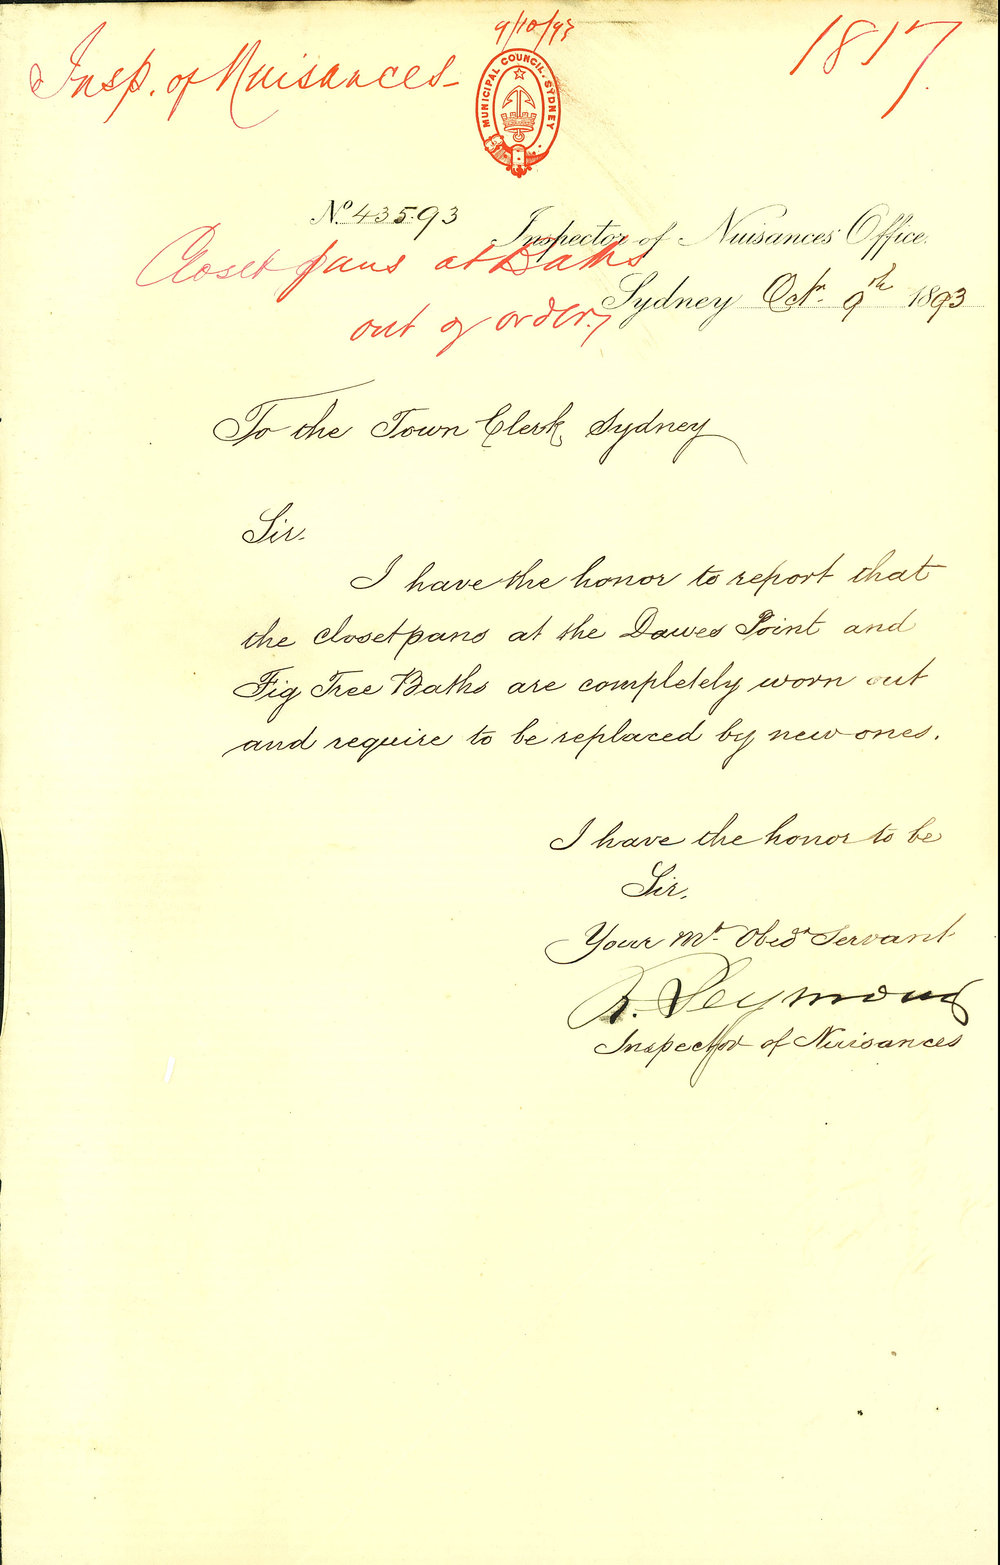 9/10/93
Insp. of Nuisances
1817
MUNICIPAL COUNCIL. SYDNEY
No. 435.93
Inspector of Nuisances Office.
Closet pans at Baths
out of order.
Sydney Octr. 9th 1893
To the Town Clerk, Sydney
Sir.
I have the honor to report that
the closetpans at the Dawes Point and
Fig Tree Baths are completely worn out
and require to be replaced by new ones.
I have the honor to be
Sir.
Your Mt. Obedt Servant
R. Seymour
Inspector of Nuisances